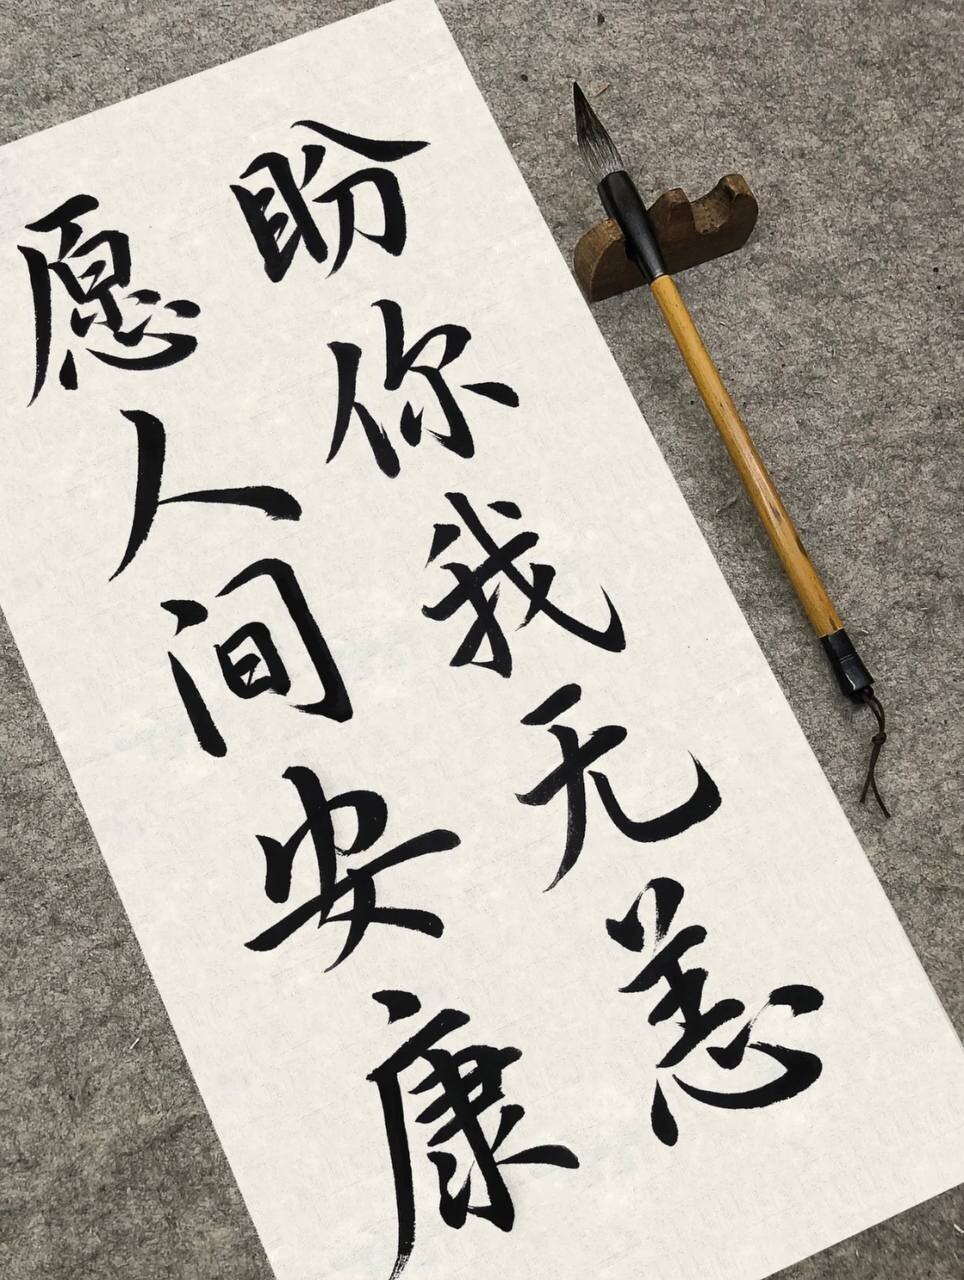 盼你我无恙
愿人间安康